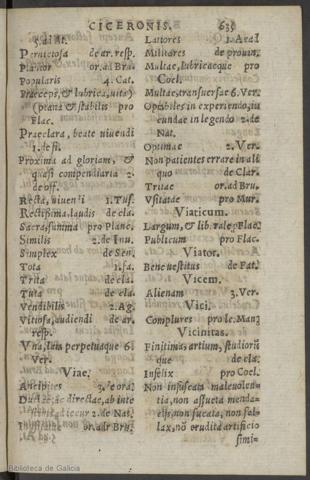 CICERONIS. 635
5. ad At.
Perniciosa de ar. resp.
Planior or. ad Bru.
Popularis 4. Cat.
Præceps, & lubrica, vitæ)
(plana & stabilis pro
Flac.
Præclara, beate viuendi
1. de fi.
Proxima ad gloriam, &
quasi conpendiaria 2.
de off.
Recta, viuendi 1. Tus.
Rectissima laudis de cla.
Sacrosumma pro Planc.
Similis 2. de Inu.
Simplex de Sen.
Tota 1. fa.
Trita de cla.
Tuta de cla.
Vendibilis 2. Ag.
Vitiosa, audiendi de ar.
resp.
Vna, suis perpetuaque 6.
Ver.
Viae.
Ancipites 3. de ora.
directae, ab inte
2. de Nat.
or. ad Bru.
Latores 1. Acad
Militares de prouin.
Multae, lubricaeque pro
Coel.
Multae, transuersae 6. Ver.
Optabiles in experiendo, iu
cundae in legendo 2. de
Nat.
Optimae 2. Ver.
Non patientes errare in ali
quo de Clar.
Tritae or. ad Bru.
Vsitatae pro Mur.
Viaticum.
Largum, & liberale p Flac.
Publicum pro Flac.
Viator.
Bene vestitus de Fat.
Vicem.
Alienam 3. Ver.
Vici.
Complures pro le. Man.
Vicinitas.
Finitima, artium, studiorũ
que de cla.
Infelix pro Coel.
Non infuscata maleuolen-
tia, non assueta menda-
cijs, non fucata, non fal-
lax, nõ erudita artificio
simi-
Biblioteca de Galicia